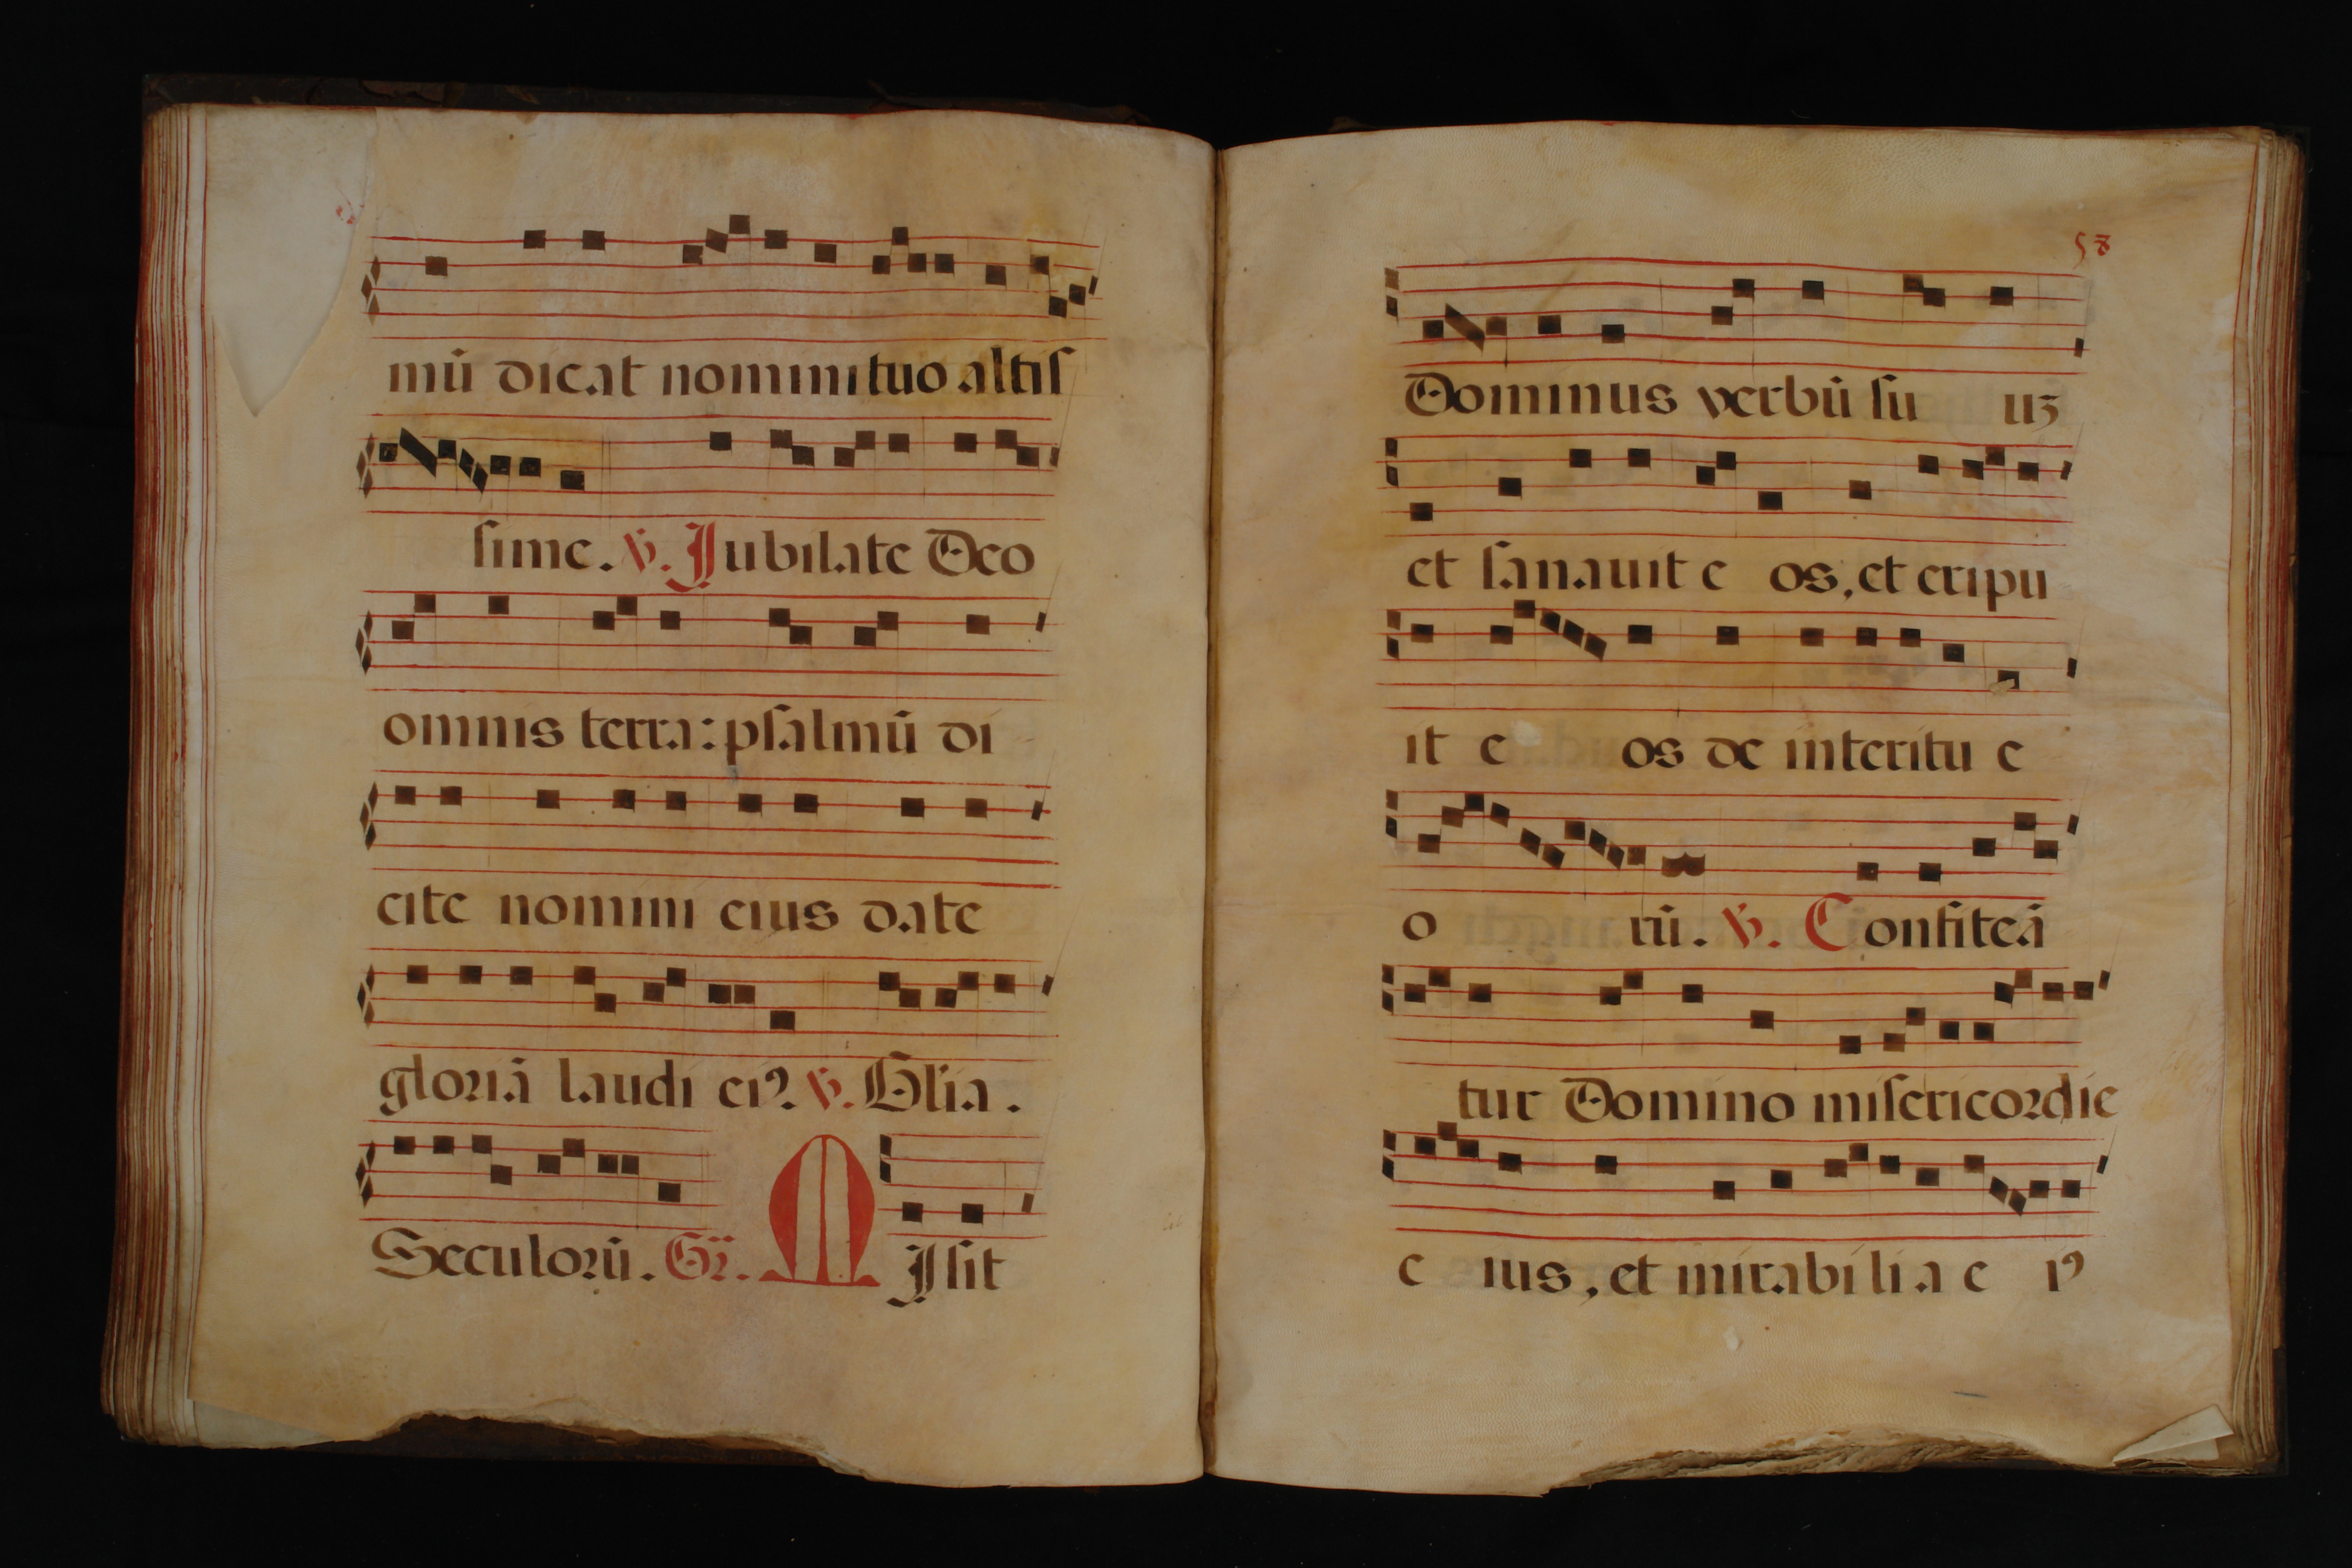 mū dicat nomini tuo altiſ
ſime. ℣. Jubilate Deo
omnis terra: pſalmū di
cite nomini eius date
gloriā laudi eiꝰ. ℣. Glia.
Seculorū. Gr. M Iſit
58
Dominus verbū ſu uꝫ
et ſanauit e os, et eripu
it e os de interitu e
o rū. ℣. Confiteā
tur Domino miſericordie
e ius, et mirabilia e iꝰ